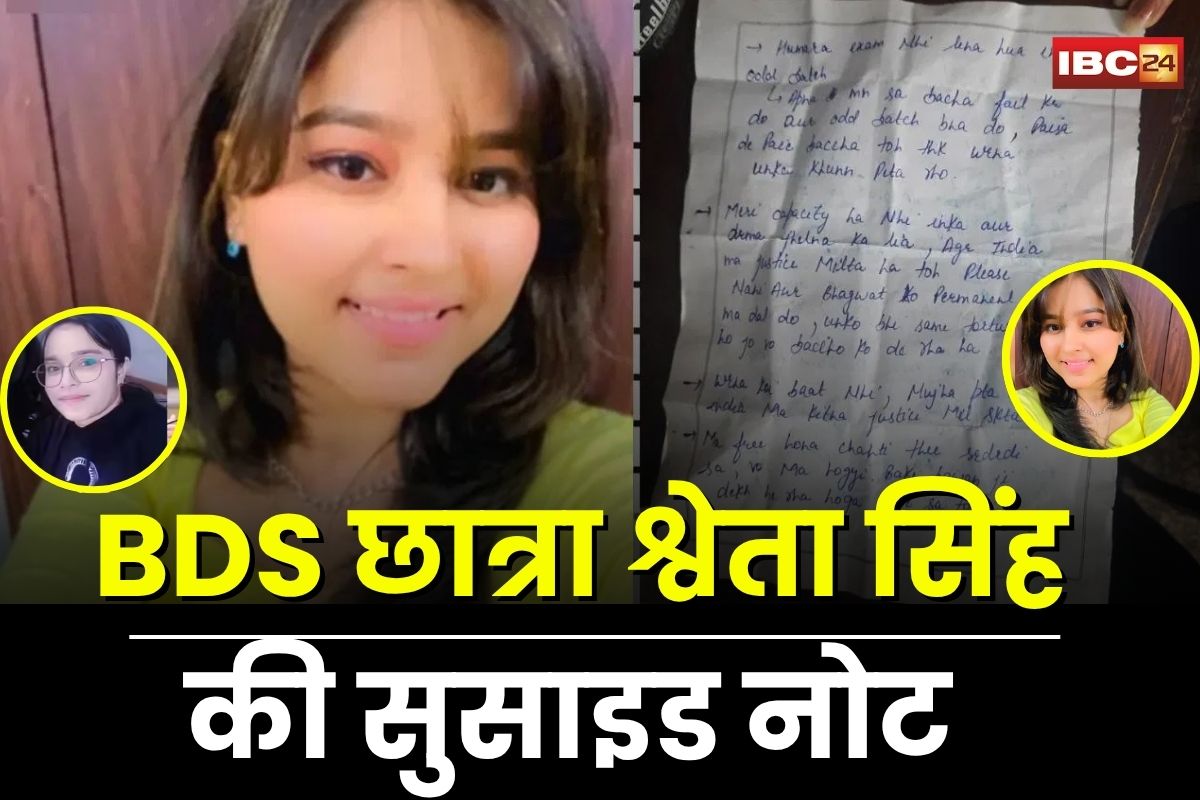 → Humara exam Nhi lena hua
odd batch
↳ Apna mn sa bacha fail kr
do aur odd batch bna do, Paisa
de Paie baccha toh thk wrna
unka khunn Pita rho.
→ Meri capacity ha Nhi inka aur
drma jhelna ka lia, Agr India
ma justice Milta ha toh Please
Nani Aur Bhagwat ko Permanent
ma dal do, unko bhi same
ho jo vo bachho ko de rha ha
→ wrna koi baat Nhi, Mujha pta
india Ma kitna justice Mil skta
→ Ma free hona chahti thee
sa, vo Ma hogyi. Baki
dekh he rha hoga sa
IBC24
BDS छात्रा श्वेता सिंह
की सुसाइड नोट